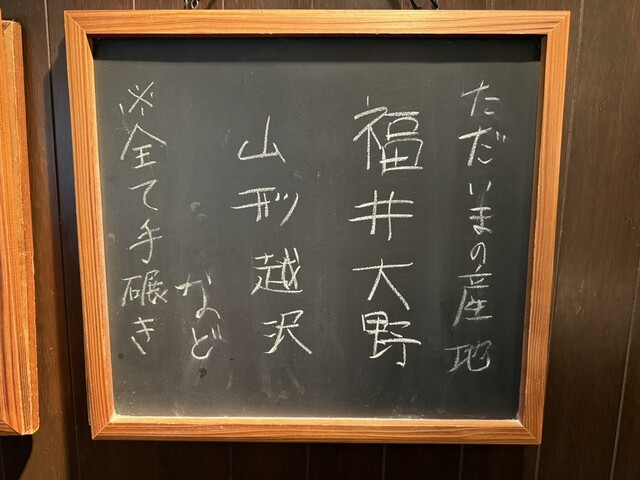 ただいまの産地
福井大野
山形越沢
など
※全て手碾き